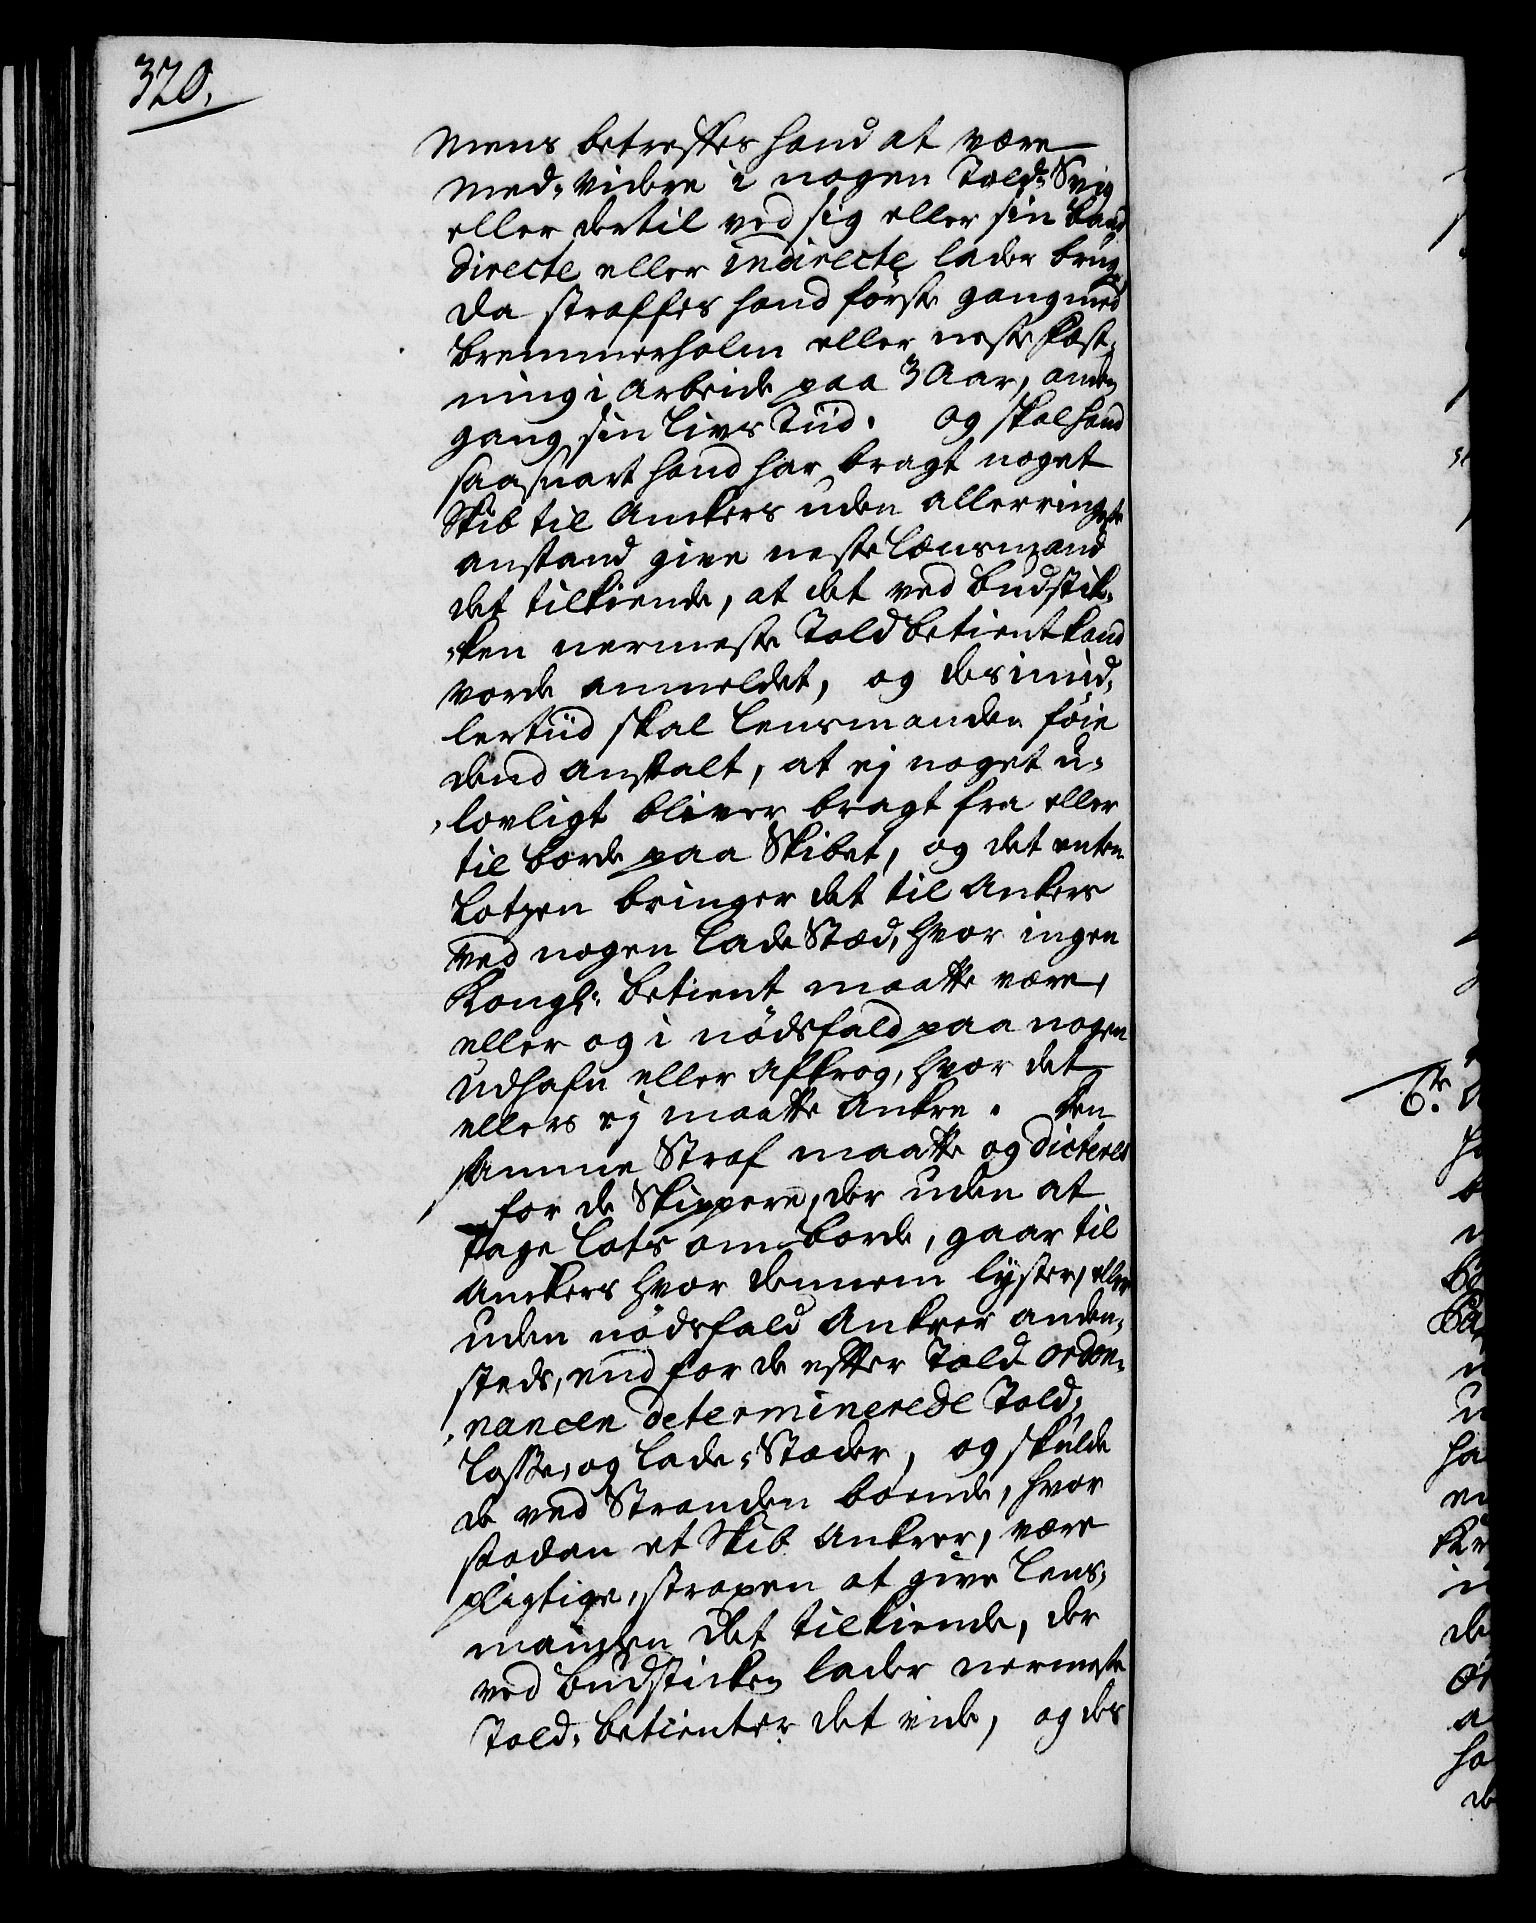 320.
mens betreffes hand at være
med-videre i nogen Told-Svig
eller dertil ved sig eller sin baad
directe eller indirecte lader brug
da straffes hand første gang med
Bremmerholm eller neste Fæst-
ning i Arbeide paa 3 Aar, anden
gang sin Livs Tiid. og skal hand
saasnart hand har bragt noget
Skib til Anckers uden allerringeste
anstand give neste Lænsmand
det tilkiende, at det ved budstik-
-ken nermeste Told betient kand
vorde anmeldet, og des imid-
lertiid skal Lensmanden føie
dend Anstalt, at ej noget u-
-lovligt bliver bragt fra eller
til borde paa Skibet, og det enten
Lotzen bringer det til Ankers
ved nogen Lade Stæd, hvor ingen
Kongl: betient maatte være,
eller og i nødsfald paa nogen
Udhafn eller Afkrog, hvor det
ellers ej maatte Ankre. den
samme Straf maatte og dicteres
for de Skippere, der uden at
tage Lots om borde, gaar til
Anckers hvor dennem lyster, eller
uden nødsfald Ankrer anden-
steds, end for de efter Told ordon-
-nancen determinerede Told,
Losse, og Lade-Stæder, og skulde
de ved Stranden boende, hvor
saadan et Skib Ankrer, være
pligtige, straxen at give Lens-
manden det tilkiende, der
ved budsticken lader nermeste
Told-betienter det vide, og des
6te